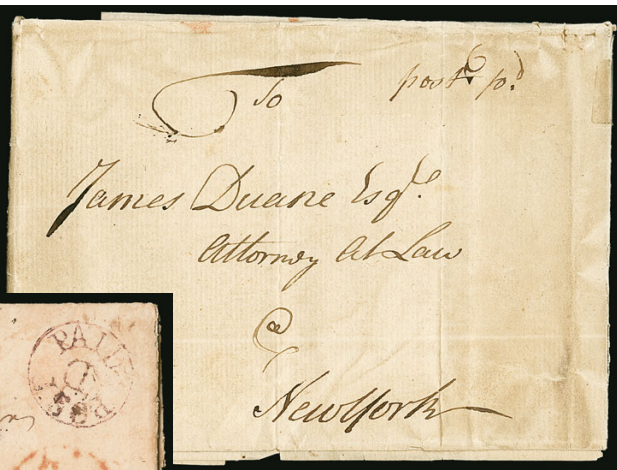 To
post.e p.d
James Duane Esq.re
Attorney At Law
@
New York
PAID